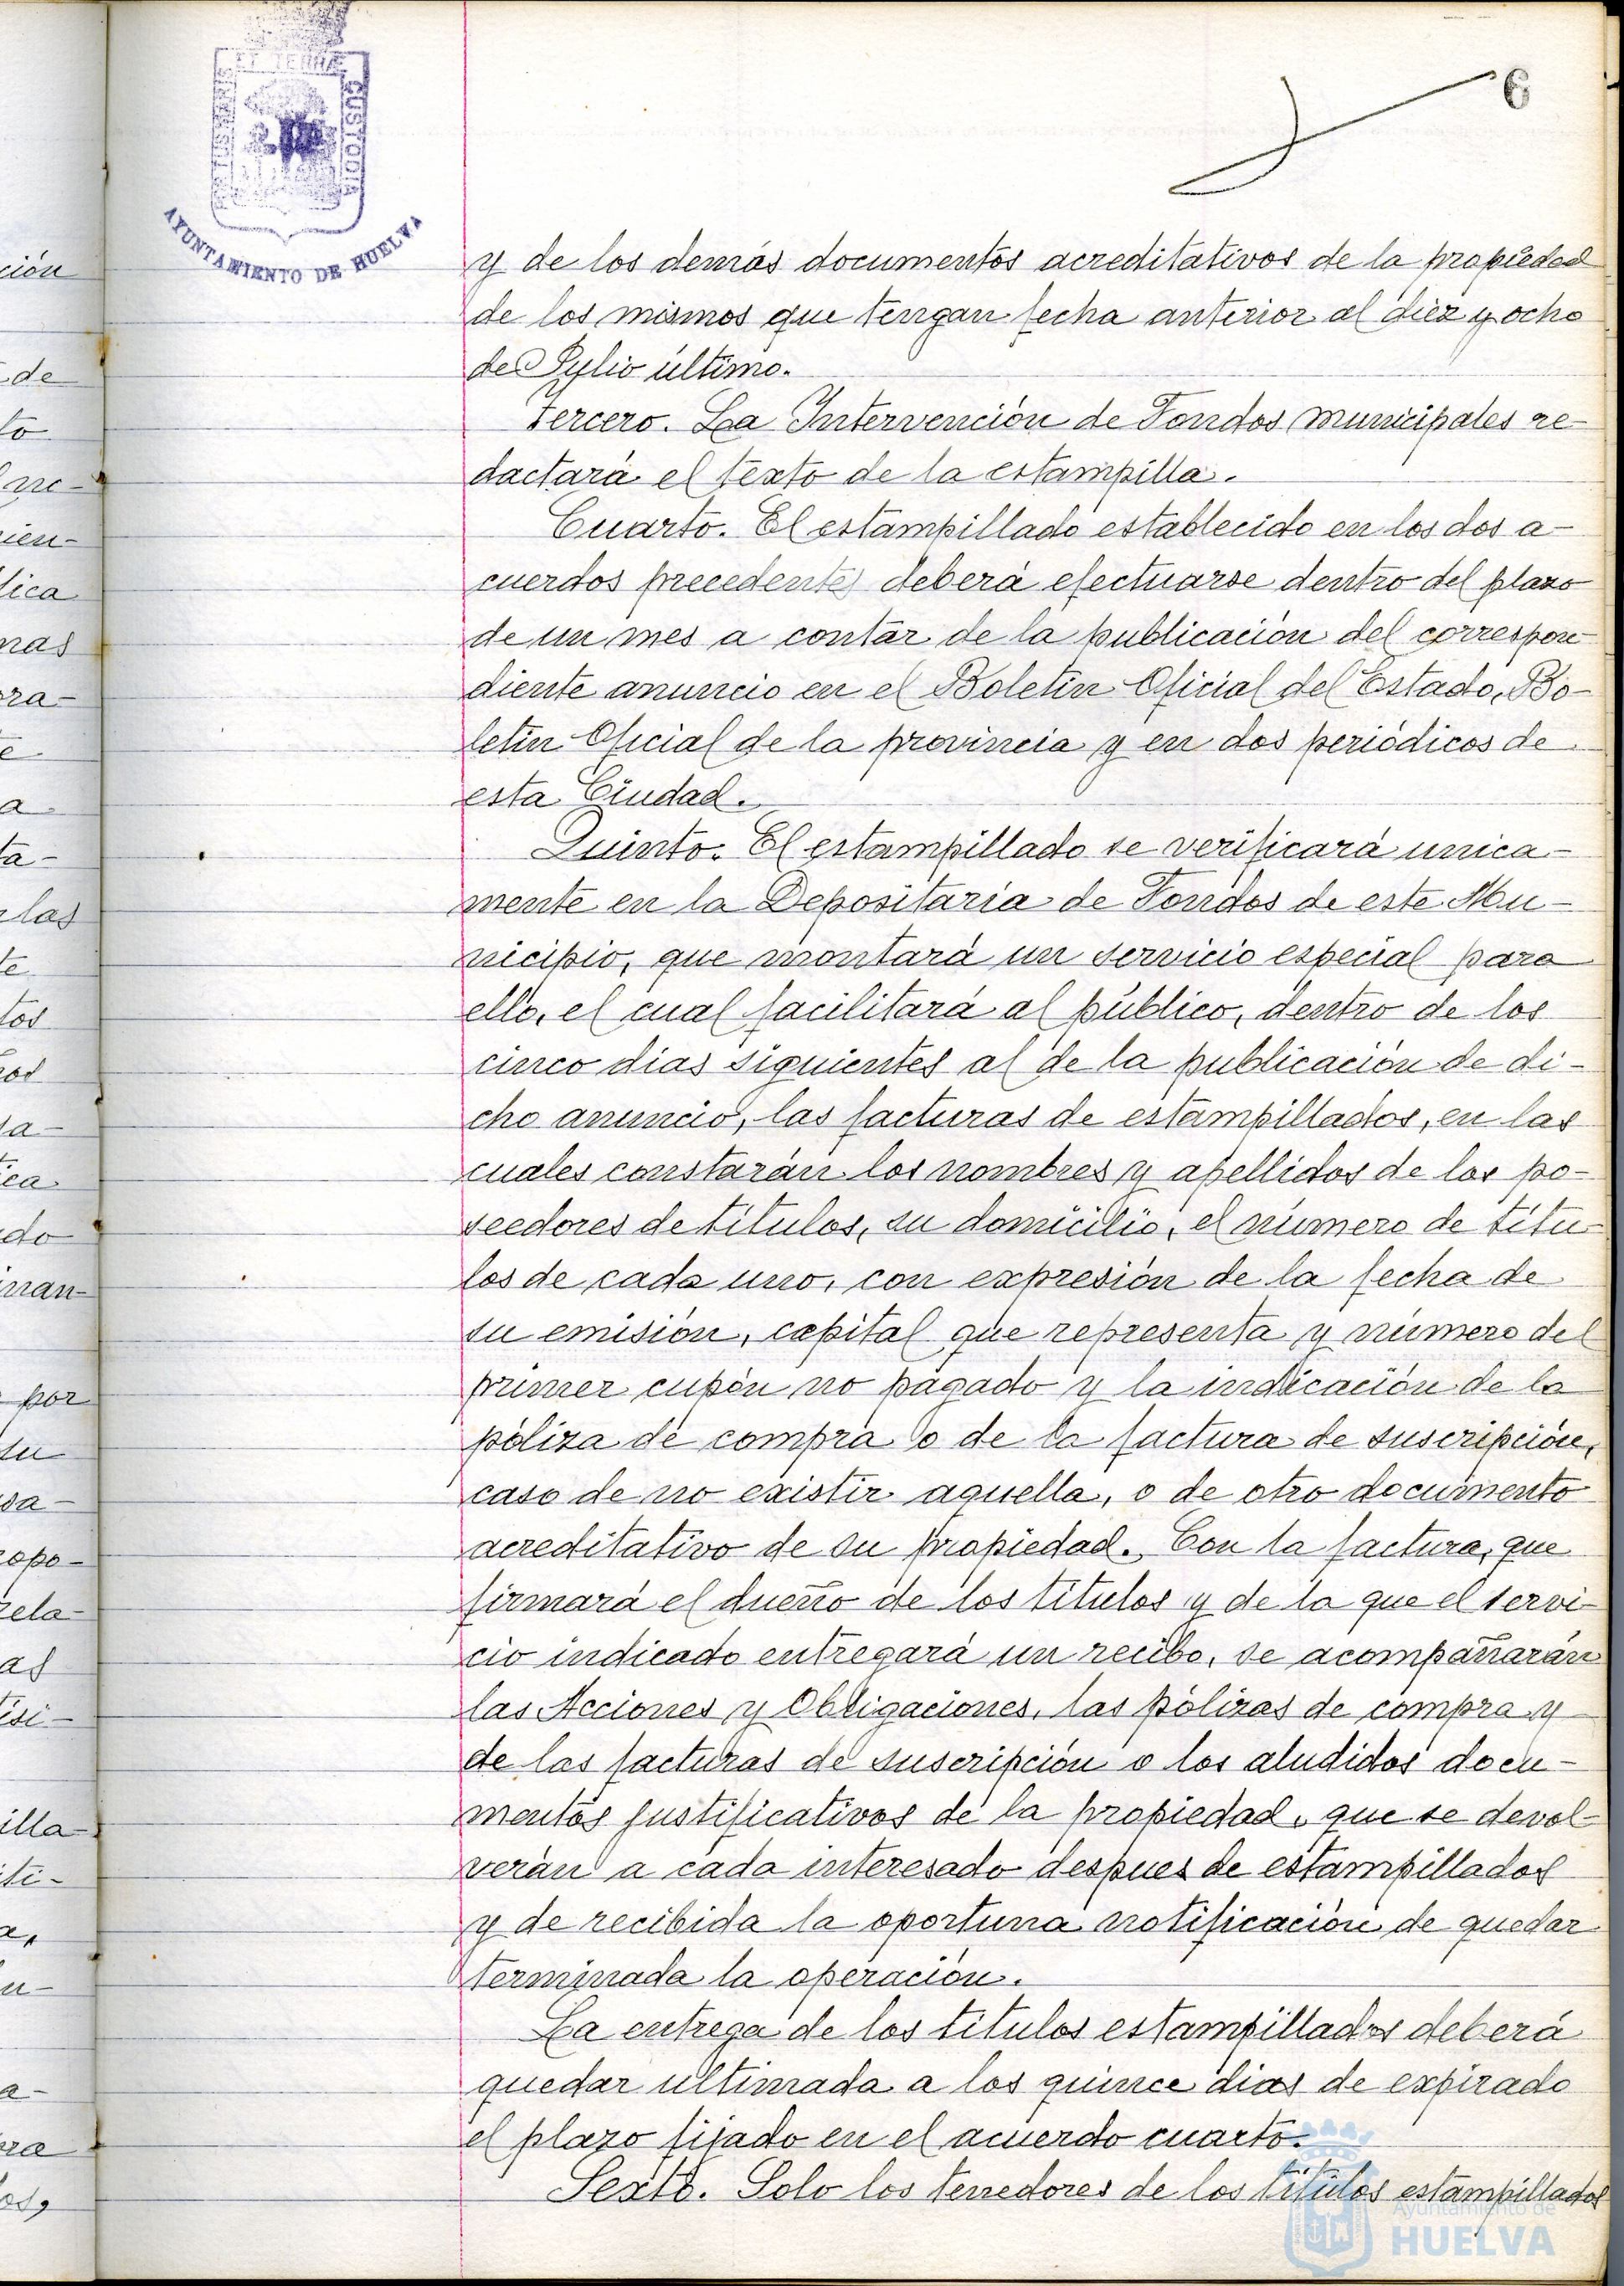 6
ET TERRAE
PORTUS MARIS
CUSTODIA
AYUNTAMIENTO DE HUELVA
y de los demás documentos acreditativos de la propiedad
de los mismos que tengan fecha anterior al diez y ocho
de Julio último.
Tercero. La Intervención de Fondos municipales re-
dactará el texto de la estampilla.
Cuarto. El estampillado establecido en los dos a-
cuerdos precedentes deberá efectuarse dentro del plazo
de un mes a contar de la publicación del correspon
diente anuncio en el Boletin Oficial del Estado, Bo-
letin Oficial de la provincia y en dos periódicos de
esta Ciudad.
Quinto. El estampillado se verificará unica-
mente en la Depositaría de Fondos de este Mu-
nicipio, que montará un servicio especial para
ello, el cual facilitará al público, dentro de los
cinco dias siguientes al de la publicación de di-
cho anuncio, las facturas de estampillados, en las
cuales constarán los nombres y apellidos de los po-
seedores de títulos, su domicilio, el número de títu
los de cada uno, con expresión de la fecha de
su emisión, capital que representa y número del
primer cupón no pagado y la indicación de la
póliza de compra o de la factura de suscripción,
caso de no existir aquella, o de otro documento
acreditativo de su propiedad. Con la factura, que
firmará el dueño de los títulos y de la que el servi-
cio indicado entregará un recibo, se acompañarán
las Acciones y Obligaciones, las pólizas de compra y
de las facturas de suscripción o los aludidos docu-
mentos justificativos de la propiedad, que se devol-
verán a cada interesado despues de estampillados
y de recibida la oportuna notificación de quedar
terminada la operación.
La entrega de los títulos estampillados deberá
quedar ultimada a los quince dias de expirado
el plazo fijado en el acuerdo cuarto.
Sexto. Solo los tenedores de los títulos estampillados
ción
de
to
ne-
ien-
lica
nas
ra-
e
a
ta-
las
te
tos
a-
do
man-
por
su
sa-
opo-
rela-
as
isi-
illa-
iti-
a,
u-
a-
ra
os,
Ayuntamiento de
HUELVA